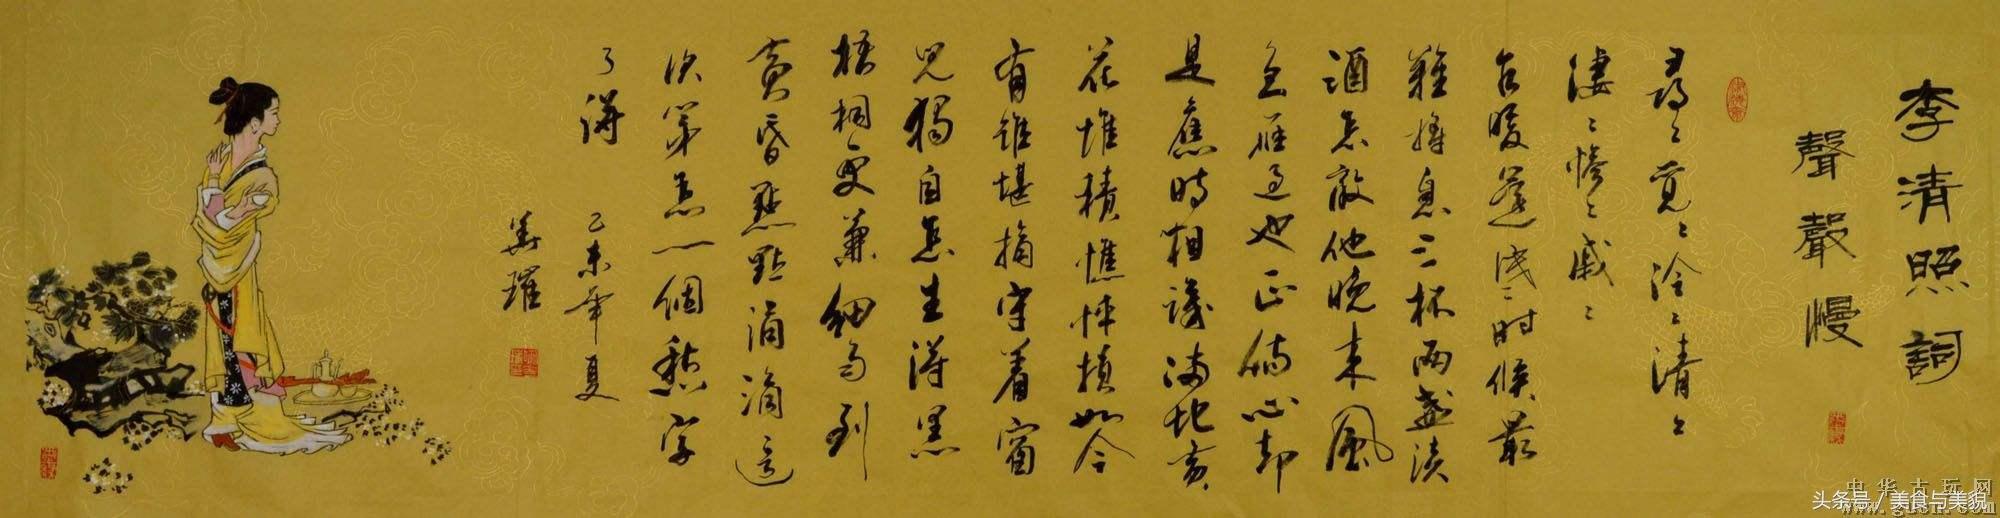 李清照詞
聲聲慢
尋〻覓〻冷〻清〻
淒〻慘〻戚〻
乍暖還时候最
難將息三杯兩盞淡
酒怎敵他晚来風
急雁過也正傷心却
是舊時相識滿地黃
花堆積憔悴損如今
有誰堪摘守着窗
兒獨自怎生得黑
梧桐更兼細雨到
黃昏點點滴滴這
次第怎一個愁字
了得 乙未年夏
中华古玩网
www.gucn.com
头条号 / 美食与美貌